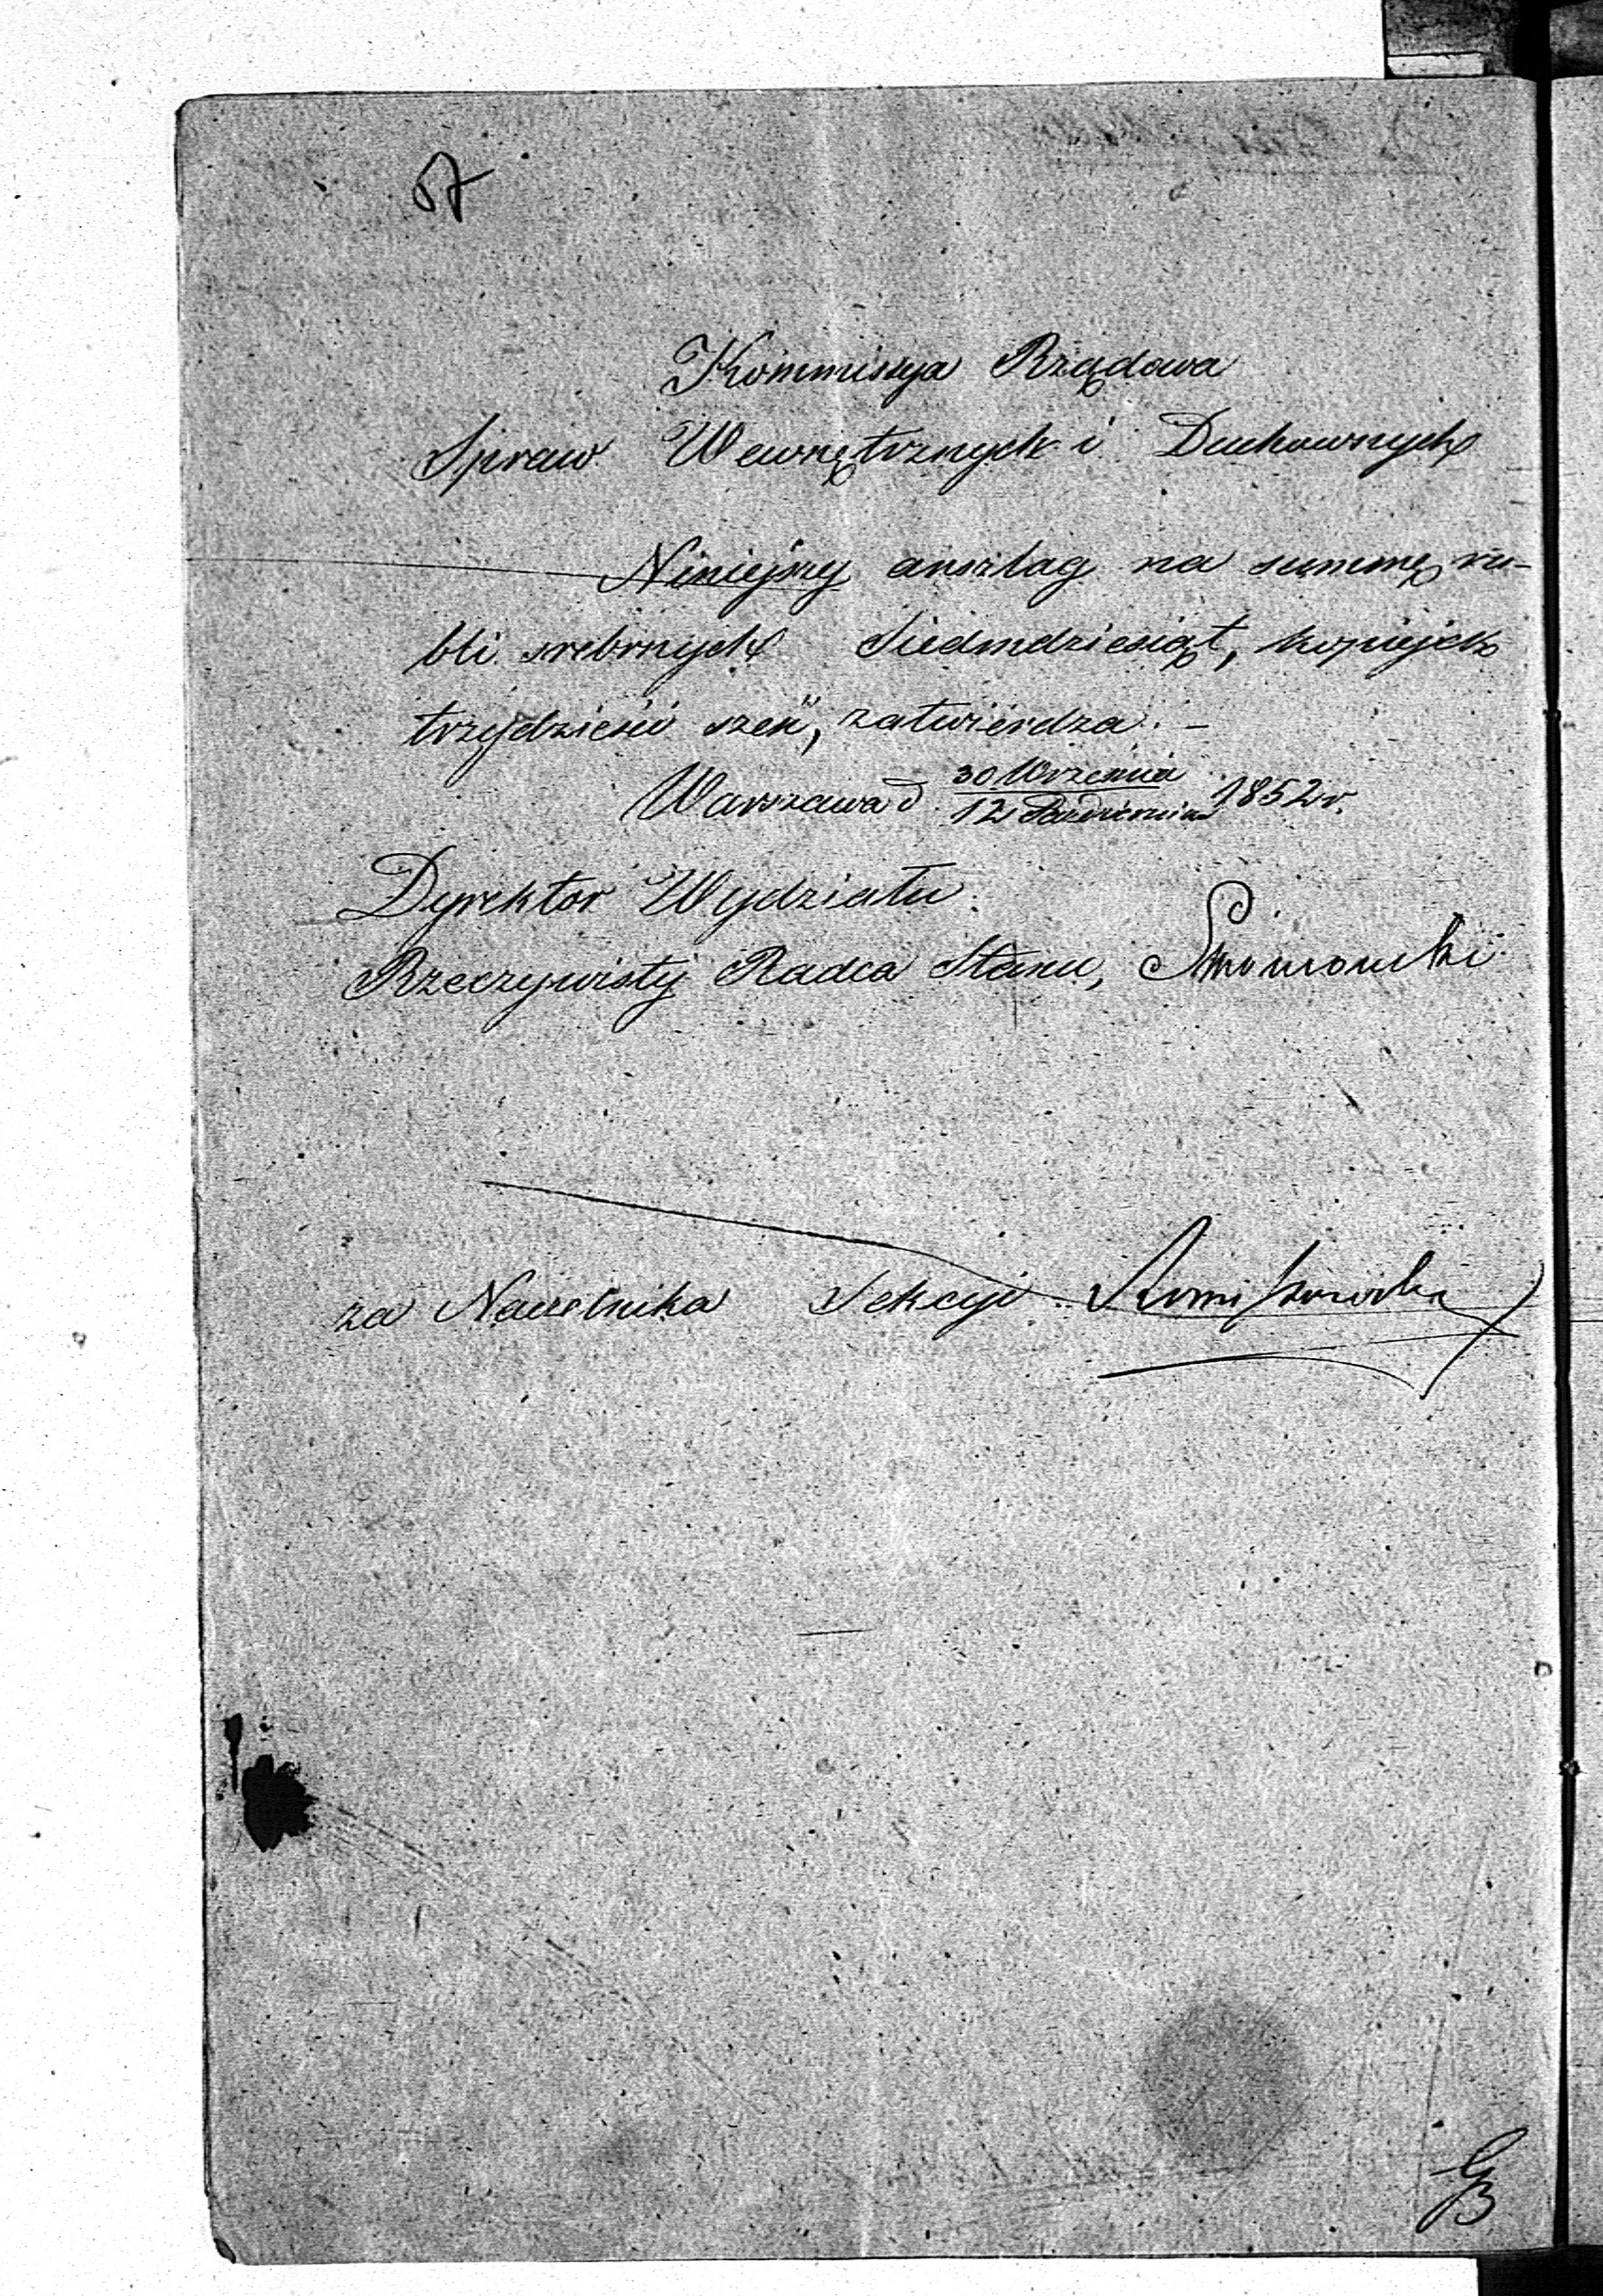 57
Kommissya Rządowa
Spraw Wewnętrznych i Duchownych
Niniejszy anszlag na summę ru-
bli srebrnych Siedmdziesiąt, kopiejek
trzydzieści sześć, zatwierdza. –
Warszawa d. 30 Września
12 Października 1852 r.
Dyrektor Wydziału
Rzeczywisty Radca Stanu,
za Naczelnika Sekcyi